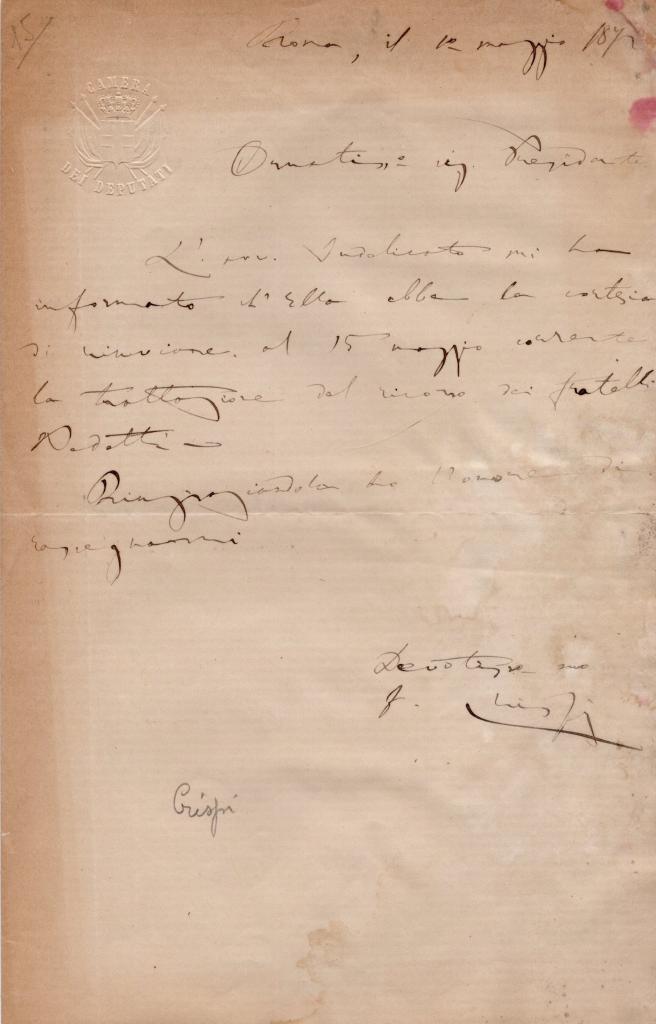 15/
Roma, il 1º maggio 187
CAMERA
DEI DEPUTATI
Ornatissº sig. Presidente
L'avv. Indelicato mi ha
informato ch'Ella ebbe la cortesia
di rinviare al 15 maggio corrente
la trattazione del ricorso dei fratelli
Ringraziandola ho l'onore di
rassegnarmi
Devotissº suo
F. Crispi
Crispi